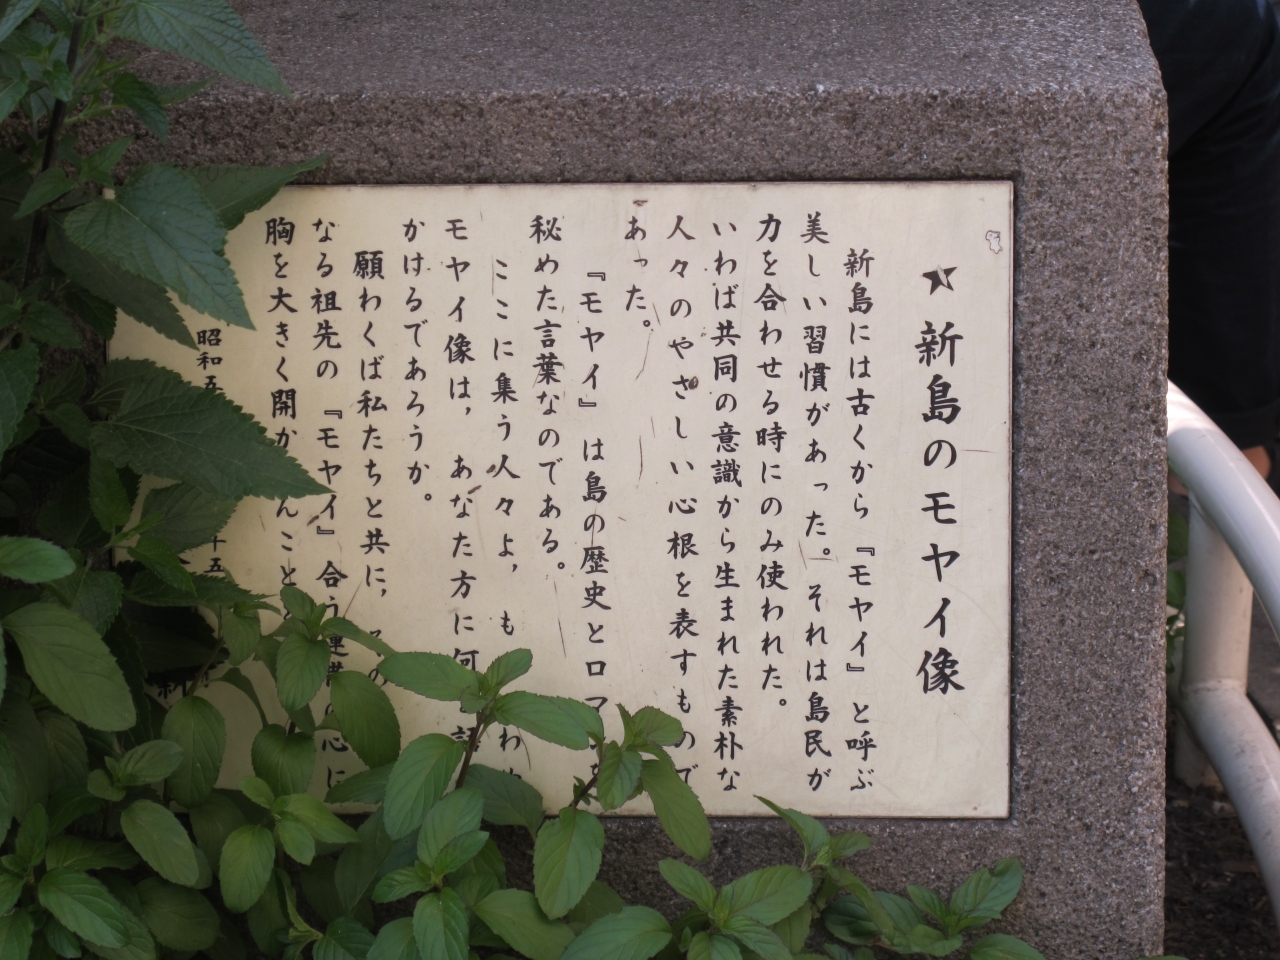 ★ 新島のモヤイ像
新島には古くから『モヤイ』と呼ぶ
美しい習慣があった。それは島民が
力を合わせる時にのみ使われた。
いわば共同の意識から生まれた素朴な
人々のやさしい心根を表すもので
あった。
『モヤイ』は島の歴史とロマ
秘めた言葉なのである。
ここに集う人々よ，も
モヤイ像は，あなた方に何
かけるであろうか。
願わくば私たちと共に，
なる祖先の『モヤイ』合う連帯の心に
胸を大きく開か んこと
昭和五 十五
新